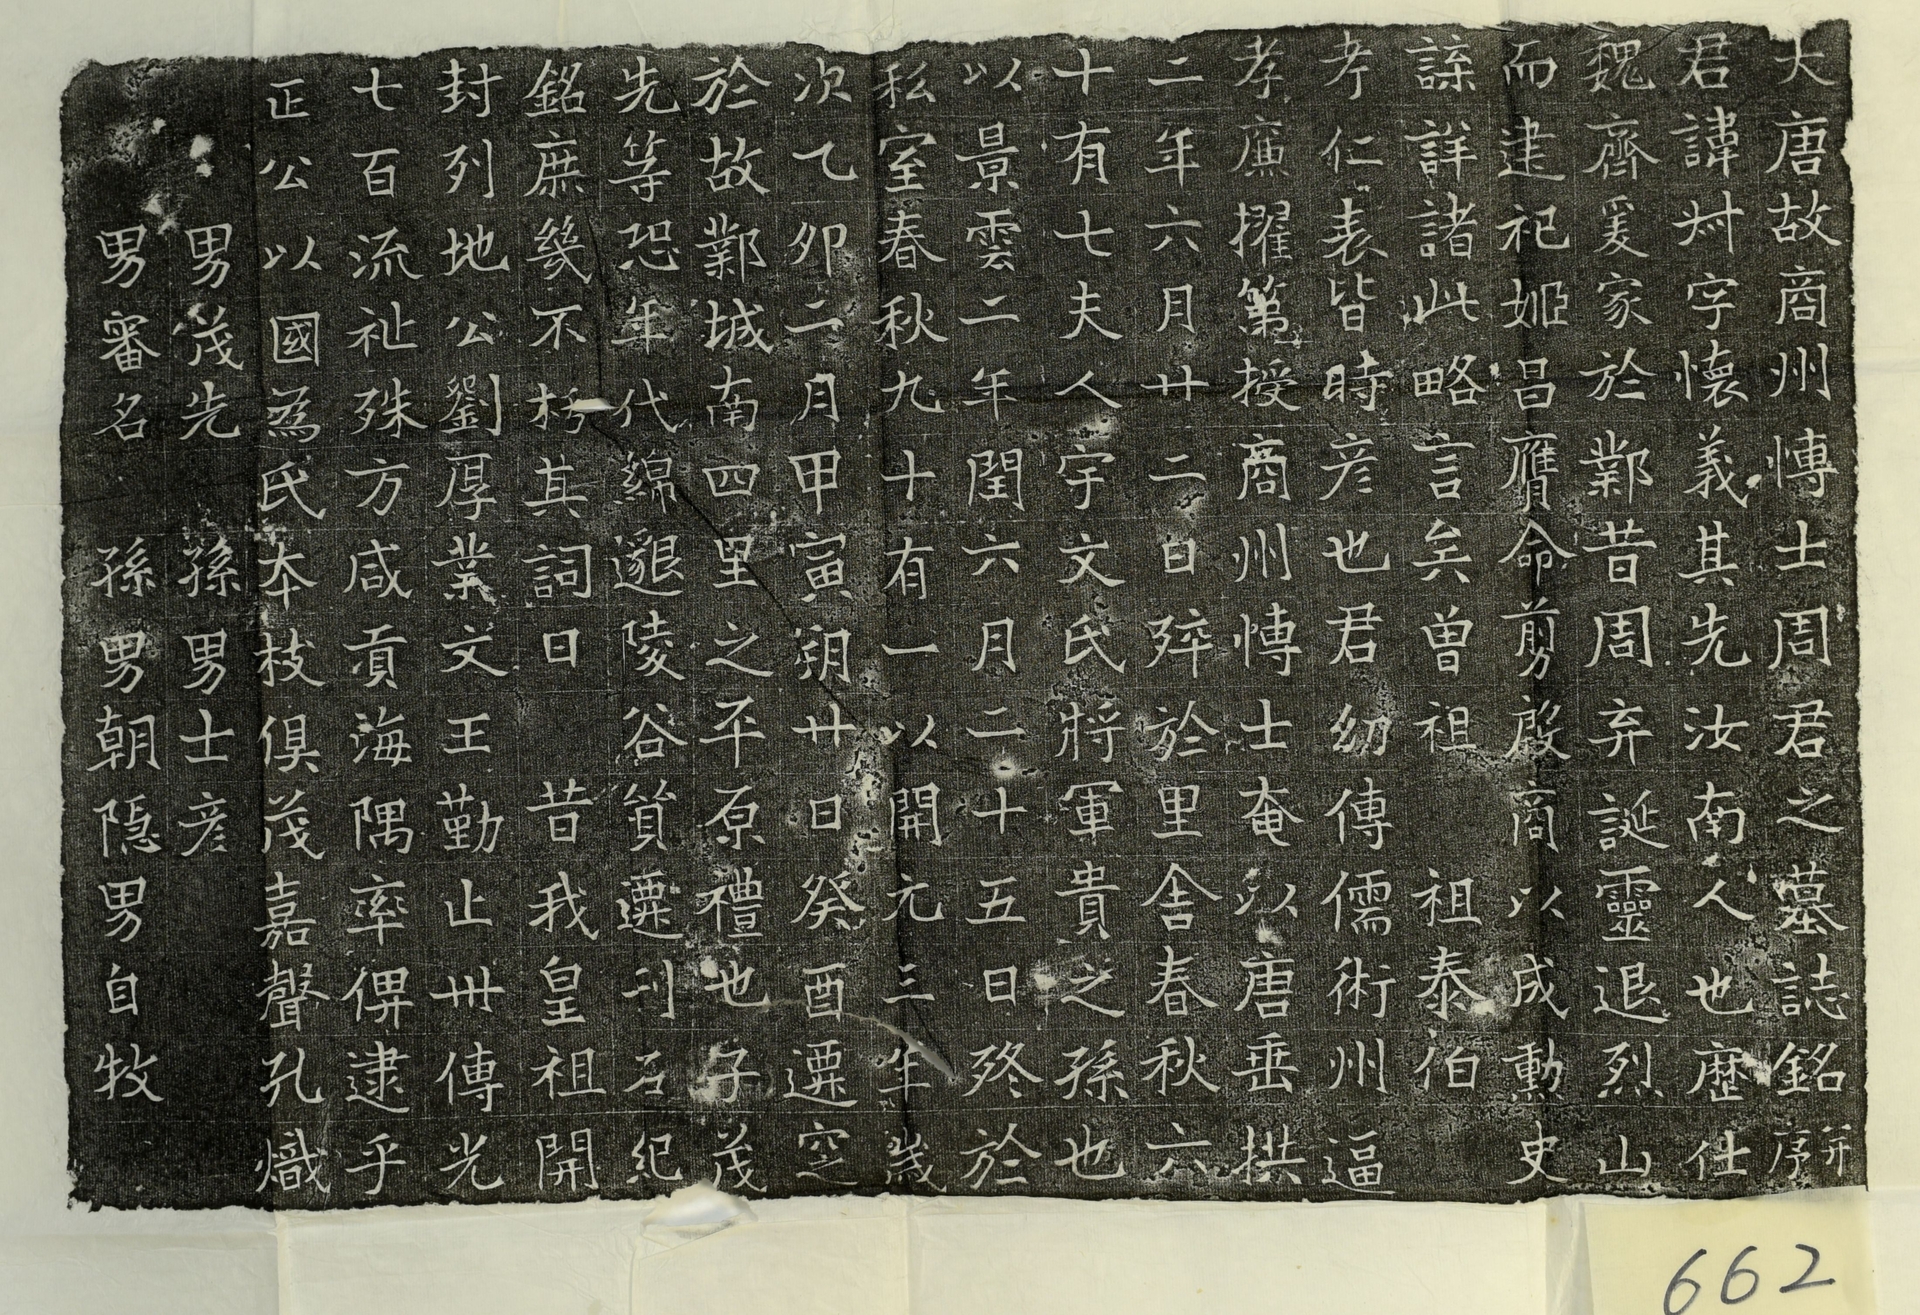 大唐故商州博士周君之墓誌銘并序
君諱艸字懷義其先汝南人也歷仕
魏齊爰家於鄴昔周弃誕靈退烈山
而建祀姬昌膺命剪殷商以成勳史
諜詳諸此略言矣曾祖 祖泰伯
考仁表皆時彦也君幼傳儒術州逼
孝廉擢第授商州博士奄以唐垂拱
二年六月廿二日卒於里舍春秋六
十有七夫人宇文氏將軍貴之孫也
以景雲二年閏六月二十五日終於
私室春秋九十有一以開元三年歲
次乙卯二月甲寅朔廿日癸酉遷窆
於故鄴城南四里之平原禮也子茂
先等恐年代綿邈陵谷貿遷刊石紀
銘庶幾不朽其詞曰 昔我皇祖開
封列地公劉厚業文王勤止卅傳光
七百流祉殊方咸貢海隅率俾逮乎
正公以國為氏本枝俱茂嘉聲孔熾
男茂先 孫男士彦
男審名 孫男朝隱男自牧
662